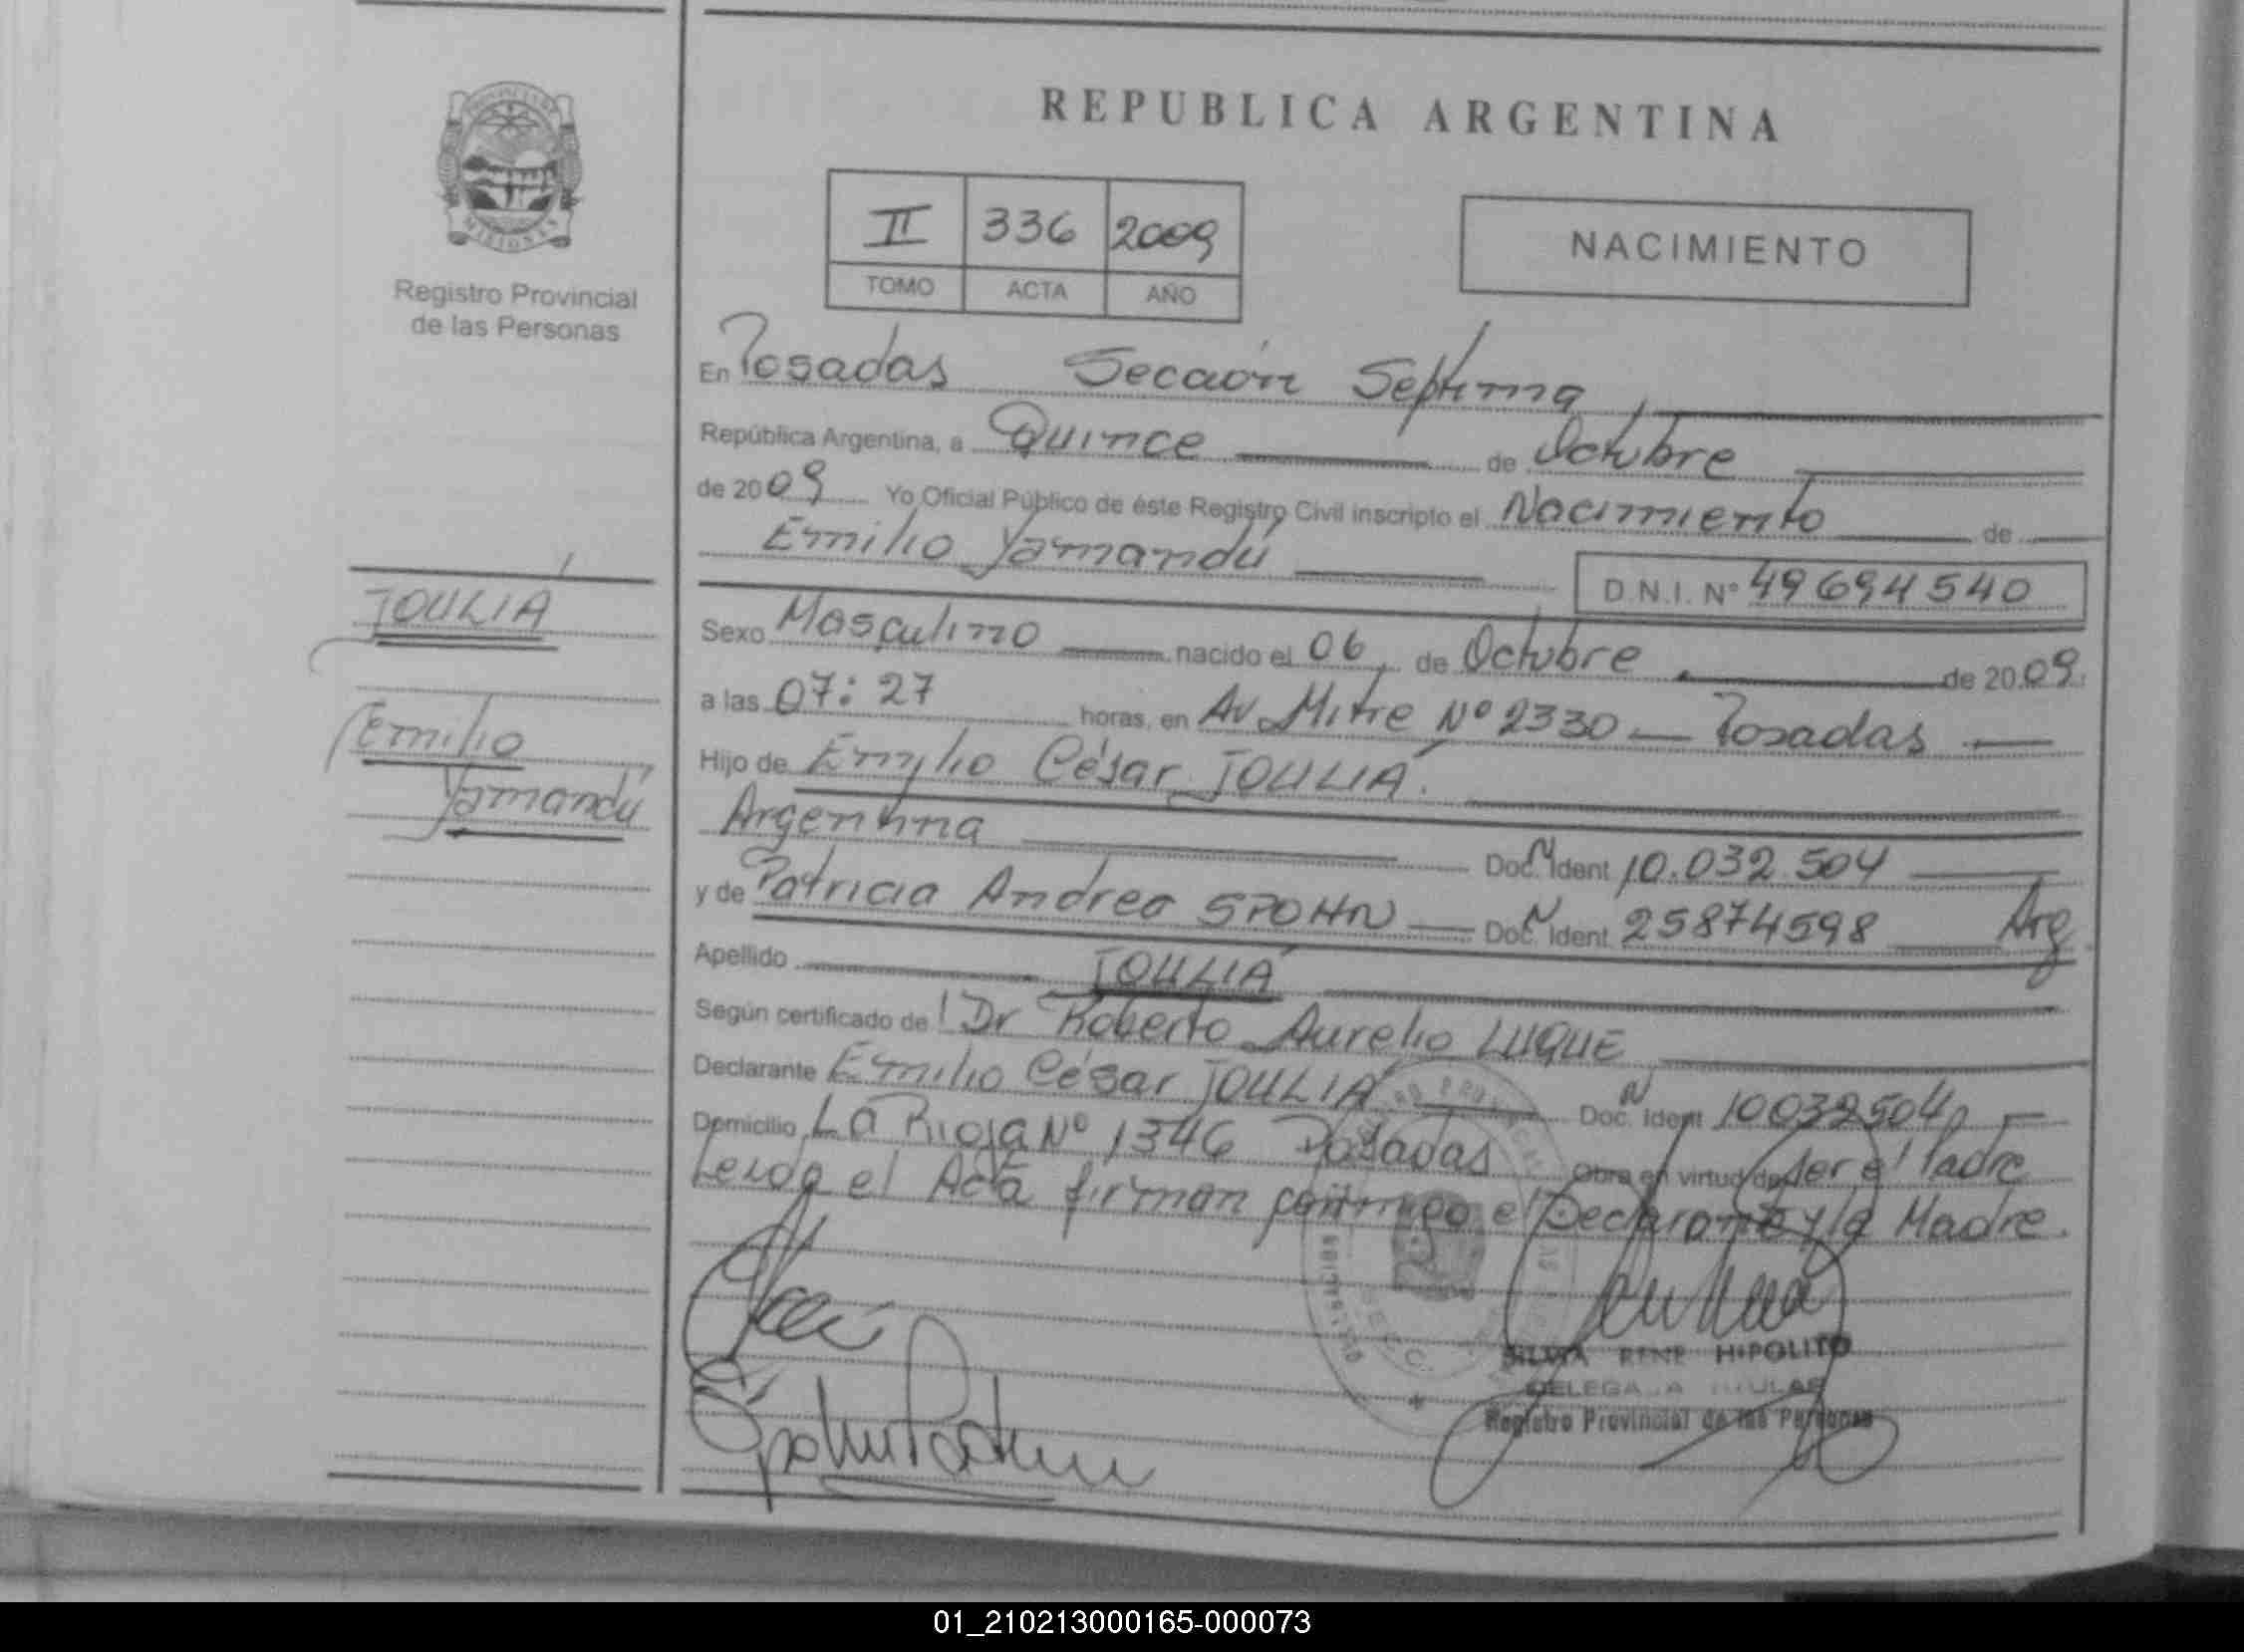 REPUBLICA ARGENTINA
PROVINCIA DE
MISIONES
Registro Provincial
de las Personas
II 336 2009
TOMO ACTA AÑO
NACIMIENTO
En Posadas Sección Septima,
República Argentina, a Quince de Octubre
de 2009 Yo Oficial Público de éste Registro Civil inscripto el Nacimiento de
Emilio Yamandú
D.N.I. Nº 49694540
JOULIÁ
Emilio
Yamandú
Sexo Masculino nacido el 06, de Octubre de 2009.
a las 07:27 horas, en Av. Mitre Nº 2330 — Posadas —
Hijo de Emilio César JOULIÁ.
Argentina Doc. Ident 10.032.504
y de Patricia Andrea SPOHN — Doc. Ident. 25874598 Arg
Apellido JOULIÁ
Según certificado de: Dr Roberto Aurelio LUQUE
Declarante Emilio César JOULIÁ Doc. Ident 10032504
Domicilio La Rioja Nº 1346 Posadas Obra en virtud de ser el Padre
Leida el Acta firman conmigo el Declarante y la Madre.
SECC.
SILVIA RENE HIPOLITO
DELEGADA TITULAR
Registro Provincial de las Personas
01_210213000165-000073